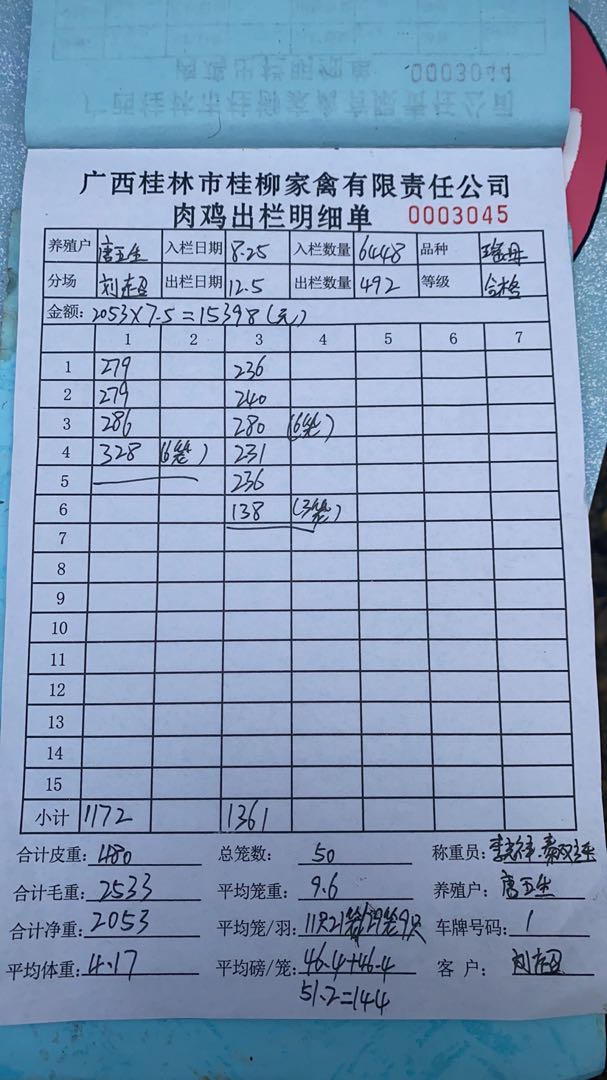 肉鸡出栏明细单 0003044
广西桂林市桂柳家禽有限责任公司
广西桂林市桂柳家禽有限责任公司
肉鸡出栏明细单 0003045
养殖户 唐五生 入栏日期 8.25 入栏数量 6448 品种
分场 出栏日期 12.5 出栏数量 492 等级 合格
金额: 2053×7.5=15398(元)
1 2 3 4 5 6 7
1 279 236
2 279 240
3 286 280 (6笼)
4 328 (6笼) 231
5 236
6 138 (3笼)
7
8
9
10
11
12
13
14
15
小计 1172 1361
合计皮重: 480 总笼数: 50 称重员:
合计毛重: 2533 平均笼重: 9.6 养殖户: 唐五生
合计净重: 2053 平均笼/羽: 11只21笼 29笼9只 车牌号码: 1
平均体重: 4.17 平均磅/笼: 46.4+46.4 客 户:
51.2=144